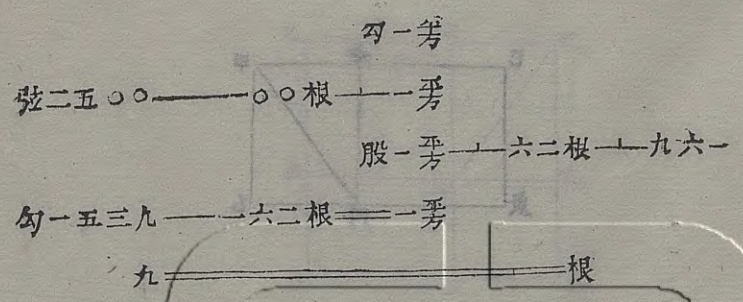 勾一平方
弦二五〇〇——一〇〇根⊥一平方
股一平方⊥六二根⊥九六一
勾一五三九——一六二根══一平方
九══根